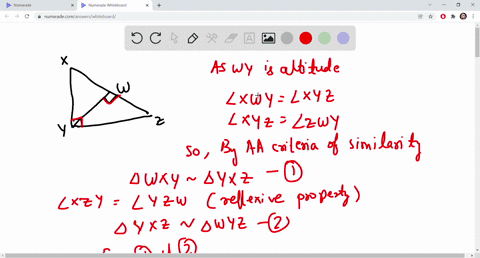 Numerade
Numerade Whiteboard
numerade.com/answers/whiteboard/
X
W
Y
Z
As WY is altitude
∠XWY = ∠XYZ
∠XYZ = ∠ZWY
So, By AA criteria of similarity
ΔWXY ~ ΔYXZ — ①
∠XZY = ∠YZW (reflexive property)
ΔYXZ ~ ΔWYZ — ②